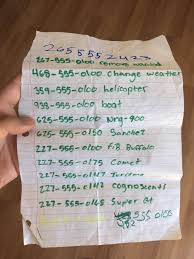 2655552423
267-555-0100 remove wanted
468-555-0100 change weather
359-555-0100 helicopter
938-555-0100 boat
625-555-0100 Nrg-900
625-555-0150 Sanchez
227-555-0100 F.B. Buffalo
227-555-0175 Comet
227-555-0147 Turismo
227-555-0142 cognoscenti
227-555-0168 Super Gt
555 0100